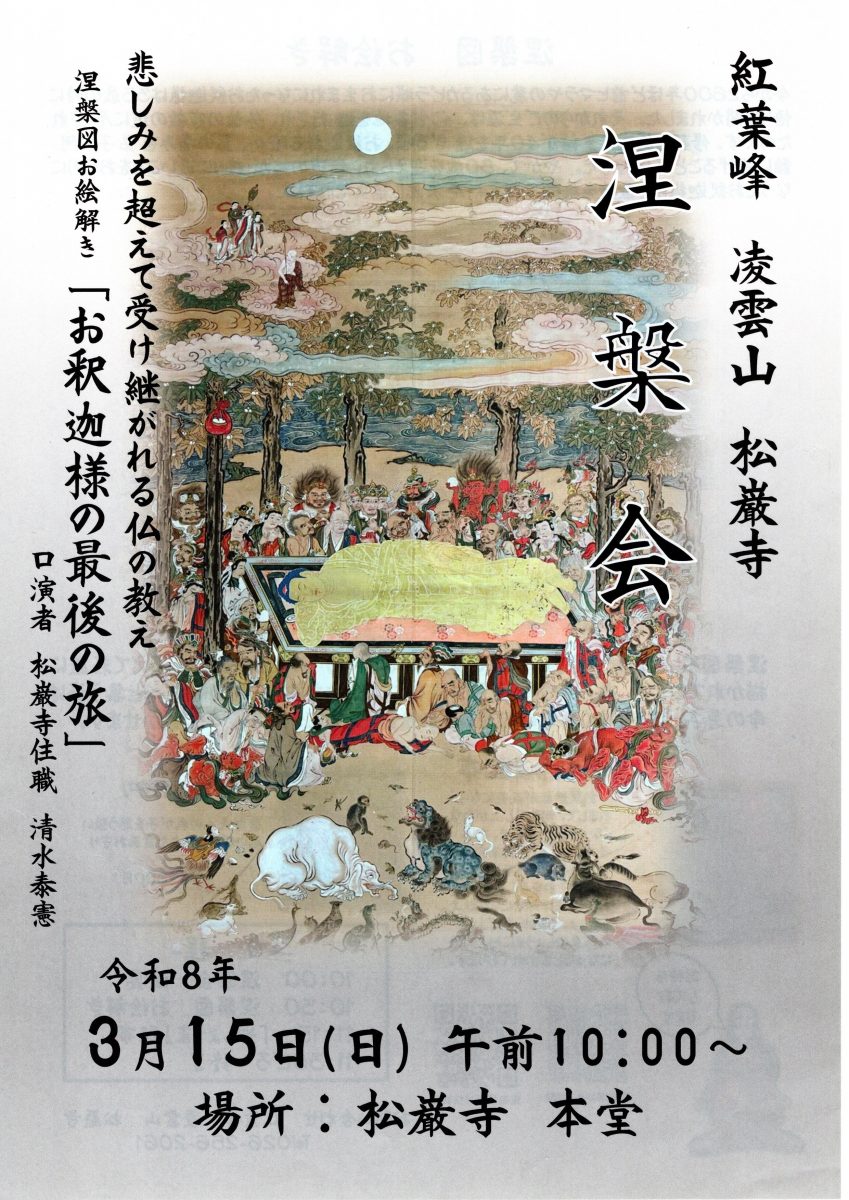 紅葉峰　凌雲山　松巌寺
涅槃会
悲しみを超えて受け継がれる仏の教え
涅槃図お絵解き「お釈迦様の最後の旅」
口演者　松巌寺住職　清水泰憲
令和8年
3月15日(日) 午前10:00～
場所：松巌寺　本堂